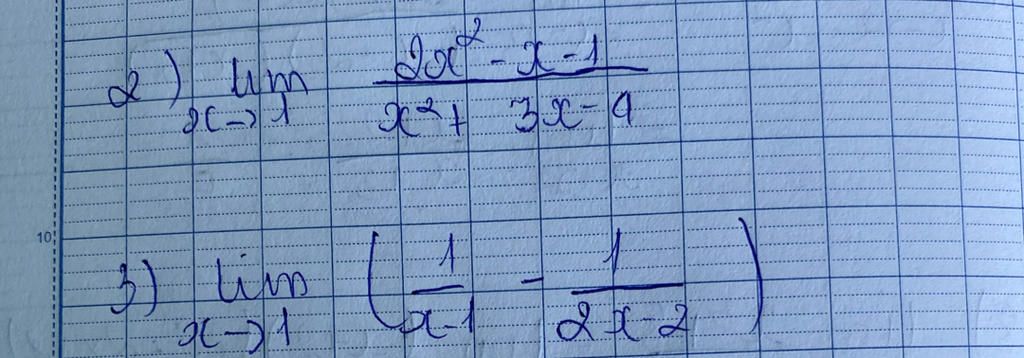 2) lim x→1 (2x² - x - 1)/(x² + 3x - 4)
10
3) lim x→1 (1/(x-1) - 1/(2x-2))